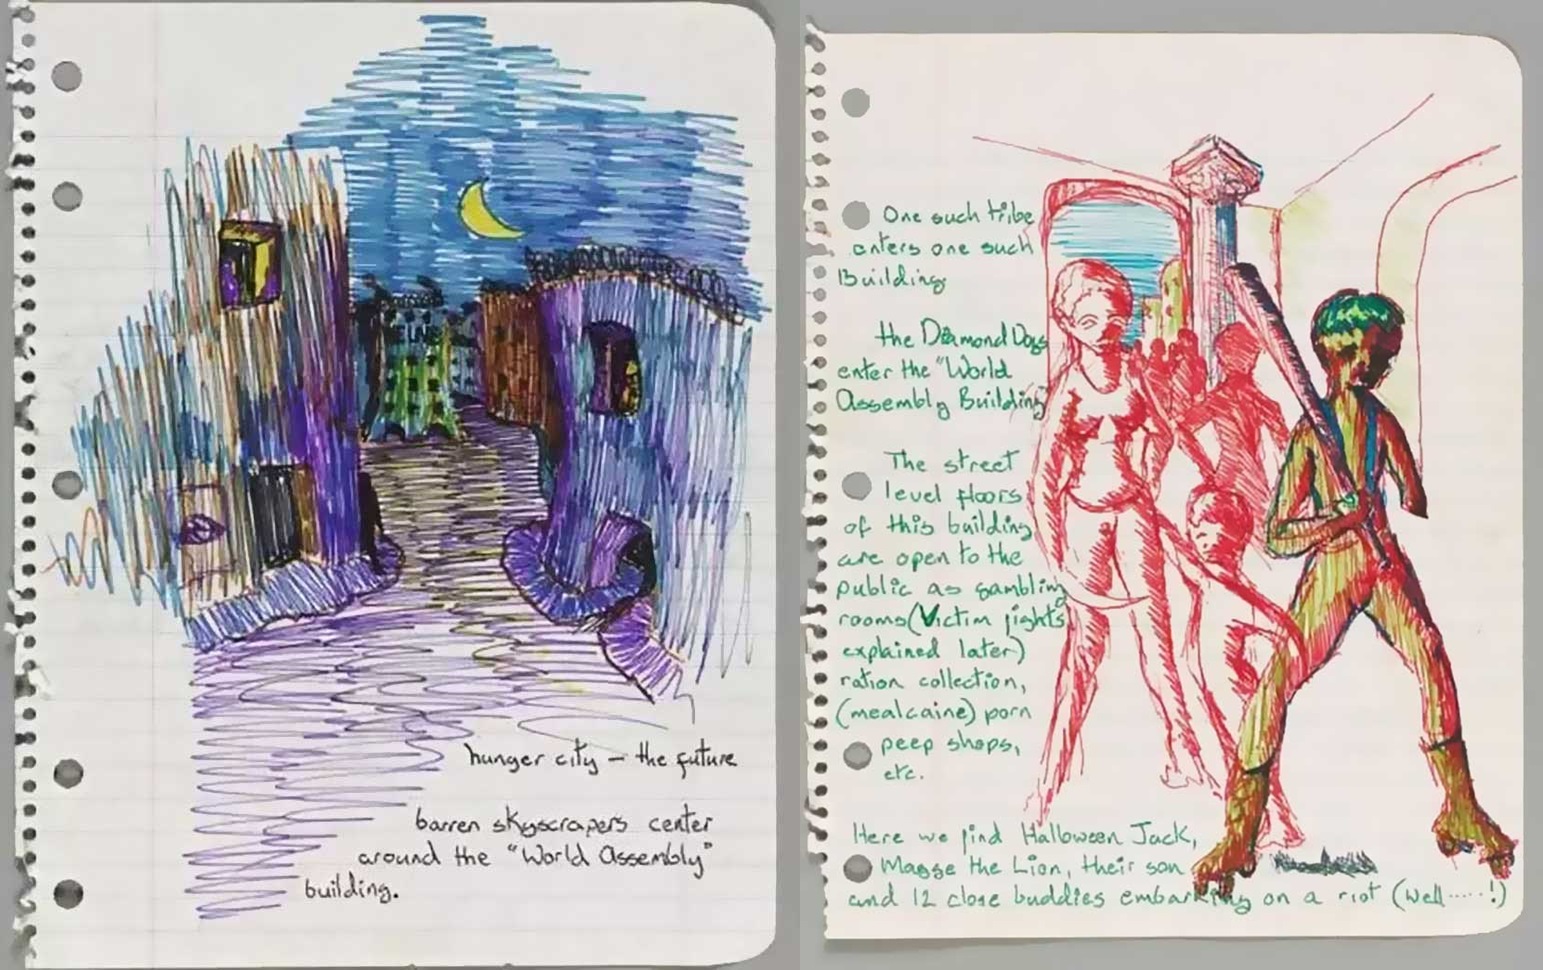 hunger city – the future
barren skyscrapers center
around the "World Assembly"
building.
One such tribe
enters one such
Building
the Diamond Dogs
enter the "World
Assembly Building"
The street
level floors
of this building
are open to the
public as gambling
rooms (Victim fights
explained later)
ration collection,
(mealcaine) porn
peep shops,
etc.
Here we find Halloween Jack,
Magge the Lion, their son
and 12 close buddies embarking on a riot (well.....!)